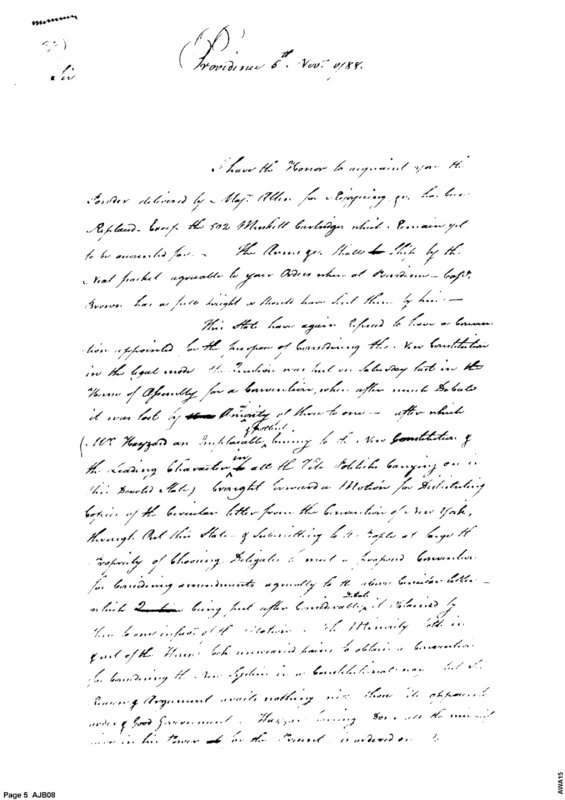 Sir
Providence 6th. Novr. 1788.
I have the Honor to acquaint you the
Powder delivered by Majr. Allen for has been
Replaced Except the 502 Muskett Cartridges which Remain yet
to be accounted for. The Arms &c Shall Ship by the
Next packet agreeable to your Orders when at Providence – Capt.
Brown has a full freight or Should have Sent them by him –
This State have again Refused to have a Conven
tion appointed for the purpose of Considering the New Constitution
in the legal mode the Question was put on Saturday last in the
House of Assembly for a Convention, when after much Debate
it was lost by a Majority of three to one – after which
(Mr Hazzard an Implacable & Enemy to the New Constitution &
the Leading Character in all the Vile Politicks Carrying on in
this Devoted State) brought forward a Motion for Distributing
Copies of the Circular letter from the Convention of New York,
through Out this State & Submitting to the People at large the
Propriety of Choosing Deligates to meet a Proposed Convention
for Considering amendments agreeable to the above Circular letter –
which being put after Considerable Debate it Obtained by
three to one in favor of the Motion. The Minority in
part of the House took unwearied pains to obtain a Convention
for Considering the New System in a Constitutional way but
Reason & Argument avails nothing with those its opposed
order & Good Government. Hazzard having Done all the mischief
in his Power for the Present is ordered on
Page 5 AJB08
AWA15